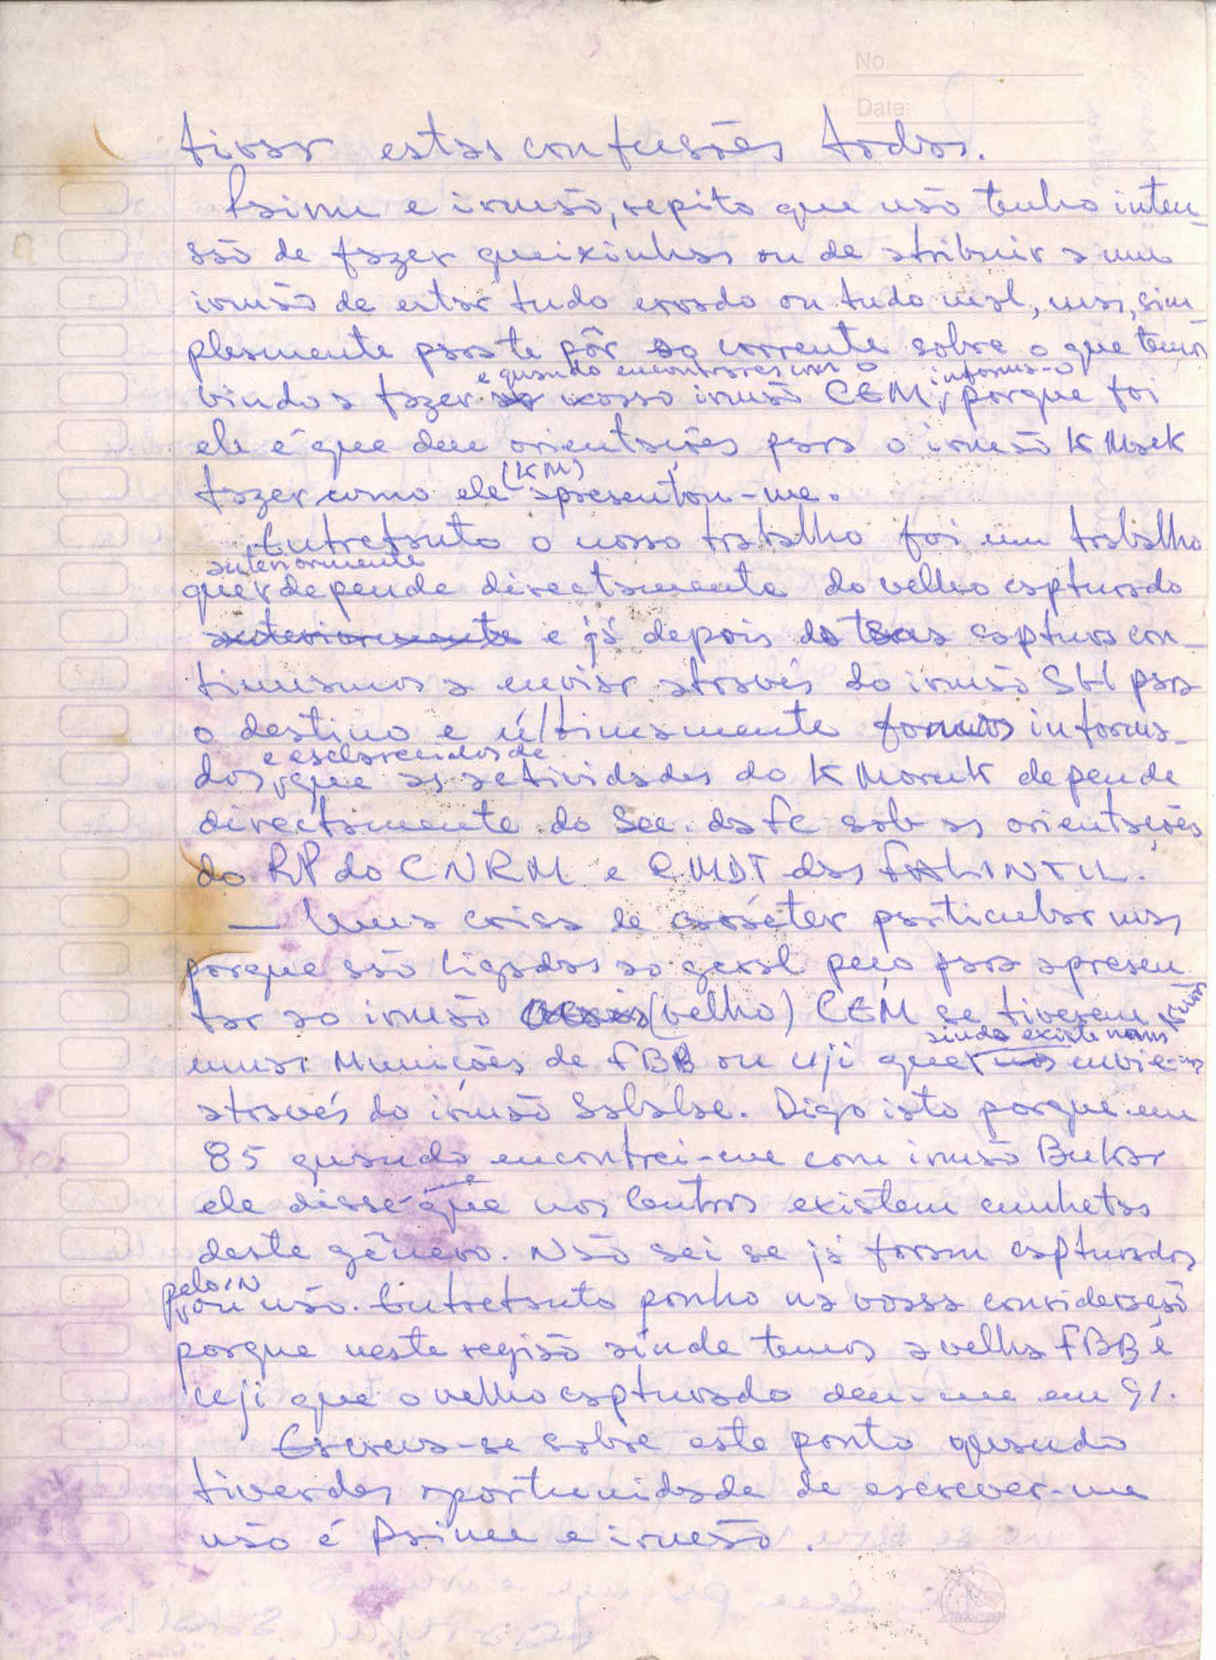 No
Data:
tirar estas confusões todas.
Primu e irmão, repito que não tenho inten-
são de fazer queixinhas ou de atribuir a um
irmão de estar tudo errado ou tudo mal, mas, sim-
plesmente para te pôr ao corrente sobre o que temos
e quando encontrares com o informa-o
vindo a fazer nosso irmão CEM, porque foi
ele é que deu orientações para o irmão K Mark
(KM)
fazer como ele apresentou-me.
Entretanto o nosso trabalho foi um trabalho
anteriormente
que depende directamente do velho capturado
anteriormente e já depois da sua captura con-
tinuamos a enviar através do irmão SH para
o destino e últimamente fomos informa-
e esclarecidos de
dos, que as actividades do K Moruk depende
directamente do Sec. da fc sob as orientações
do RP do CNRM e CMDT das FALINTIL.
— Uma coisa de carácter particular mas,
porque são ligadas ao geral peço para apresen
tar ao irmão (velho) CEM se tiverem
ainda existe
umas Munições de FBB ou Uji que envie-
através do irmão Sabalae. Digo isto porque em
85 quando encontrei-me com irmão Bukar
ele disse-que nos Centros existem cunhetas
deste gênero. Não sei se já foram capturados
pelo IN
ou não. Entretanto ponho na vossa consideração
porque neste região ainda temos a velha FBB e
Uji que o velho capturado deu-me em 91.
Escreva-se sobre este ponto quando
tiverdes oportunidade de escrever-me
não é Primu e irmão.